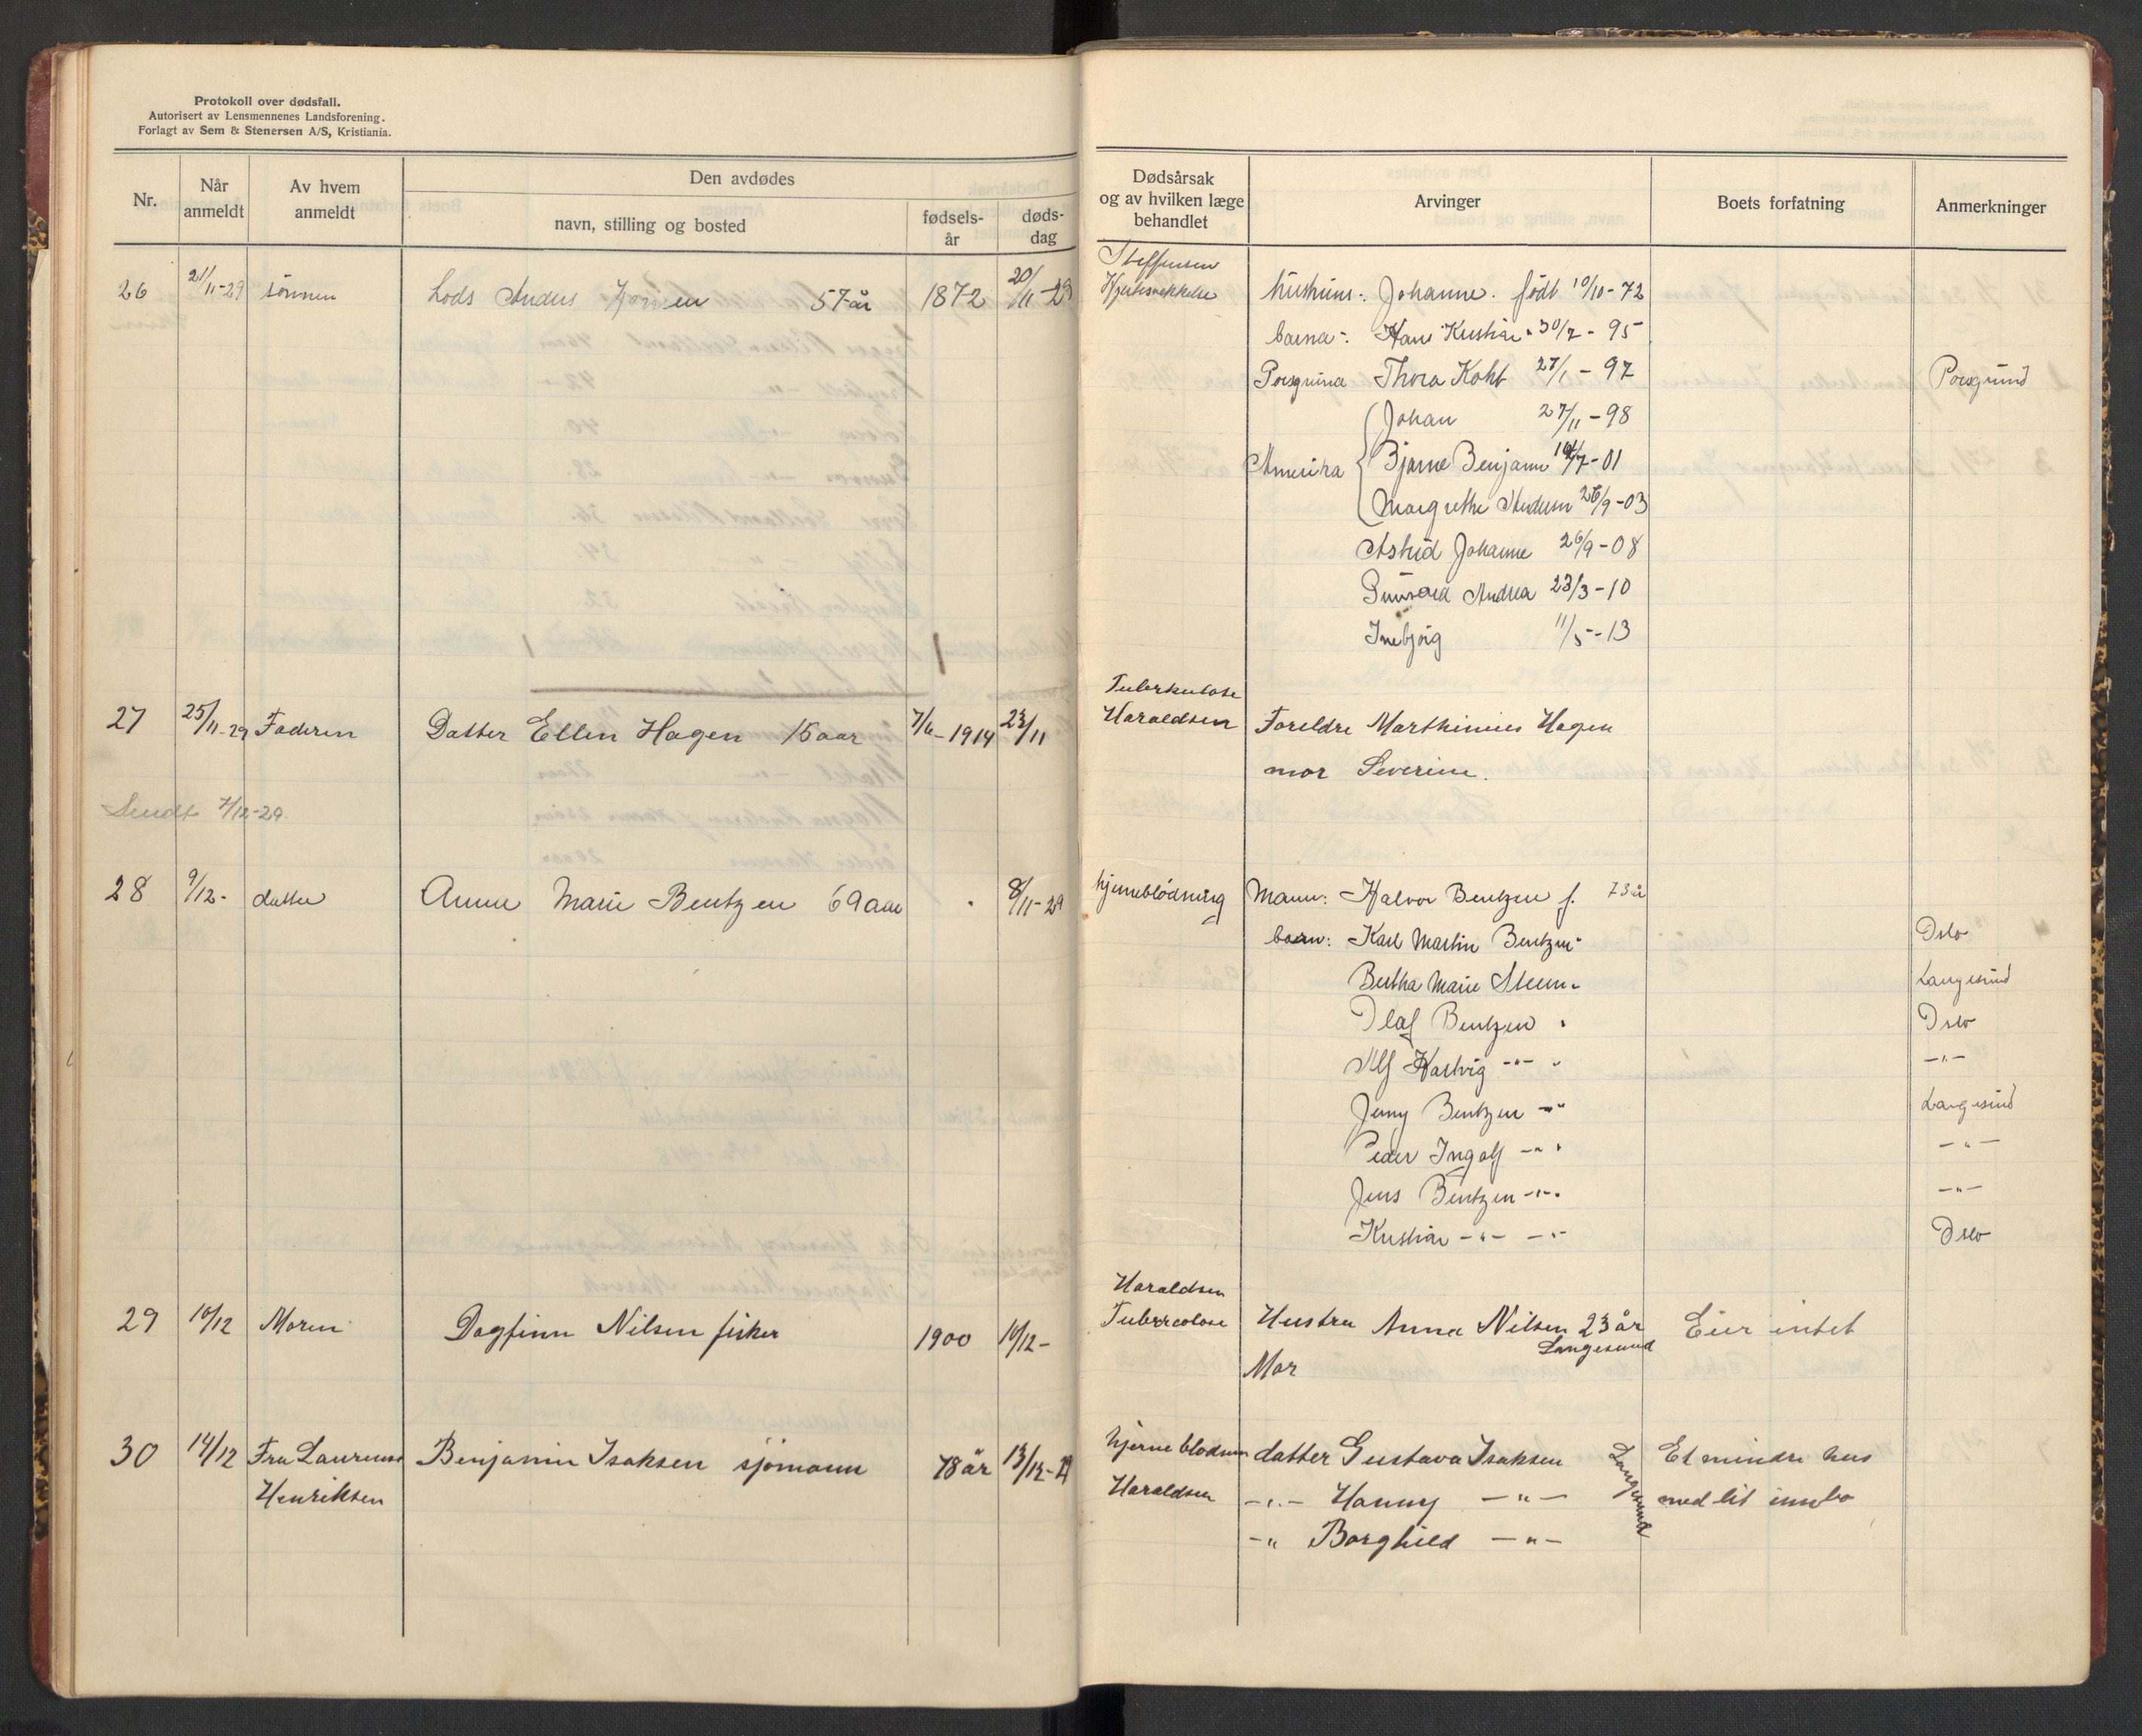 Protokoll over dødsfall.
Autorisert av Lensmennenes Landsforening.
Forlagt av Sem & Stenersen A/S, Kristiania.
Nr.
Når anmeldt
Av hvem anmeldt
Den avdødes
navn, stilling og bosted
fødsels-år
døds-dag
Dødsårsak og av hvilken læge behandlet
Arvinger
Boets forfatning
Anmerkninger
26 21/11-29 sönnen Lods Anders 57 år 1872 20/11-29
Steffensen
hustrues: Johanne. født 10/10-72
barna: Hans Kristian 30/7-95
Porsgrund Thora Koht 27/1-97 Porsgrund
Johan 27/11-98
Amerika Bjarne Benjamin /7-01
Margrethe Andersen 26/9-03
Astrid Johanne 26/9-08
Gunvald Andrea 23/3-10
Inebjörg 11/5-13
27 25/11-29 Faderen Datter Ellen Hagen 15 aar 7/6-1914 23/11
Tuberkulose
Haraldsen Foreldre Marthinius Hagen
mor Severine.
Sendt 7/12-29
28 9/12- datter Anne Marie Bentzen 69 aar 8/11-29
hjerneblödning Mann: Halvor Bentzen f. 73 år
barn: Karl Martin Bentzen Oslo
Bertha Marie Langesund
Olaf Bentzen Oslo
Alf Hartvig -"- -"-
Jenny Bentzen -"- Langesund
Peder Ingolf -"- -"-
Jens Bentzen -"- -"-
Kristian -"- -"- Oslo
29 10/12 Moren Dagfinn Nilsen fisker 1900 10/12-
Haraldsen
Tuberculose Hustru Anna Nilsen 23 år Eier intet
Langesund
Mor
30 14/12 Fru Laurense Benjamin Isaksen sjömann 78 år 13/12-29
Henriksen
hjerneblodnin datter Gustava Isaksen Langesund Et mindre hus
Haraldsen -"- Hanny -"- med lit innbo
-" Borghild -"-